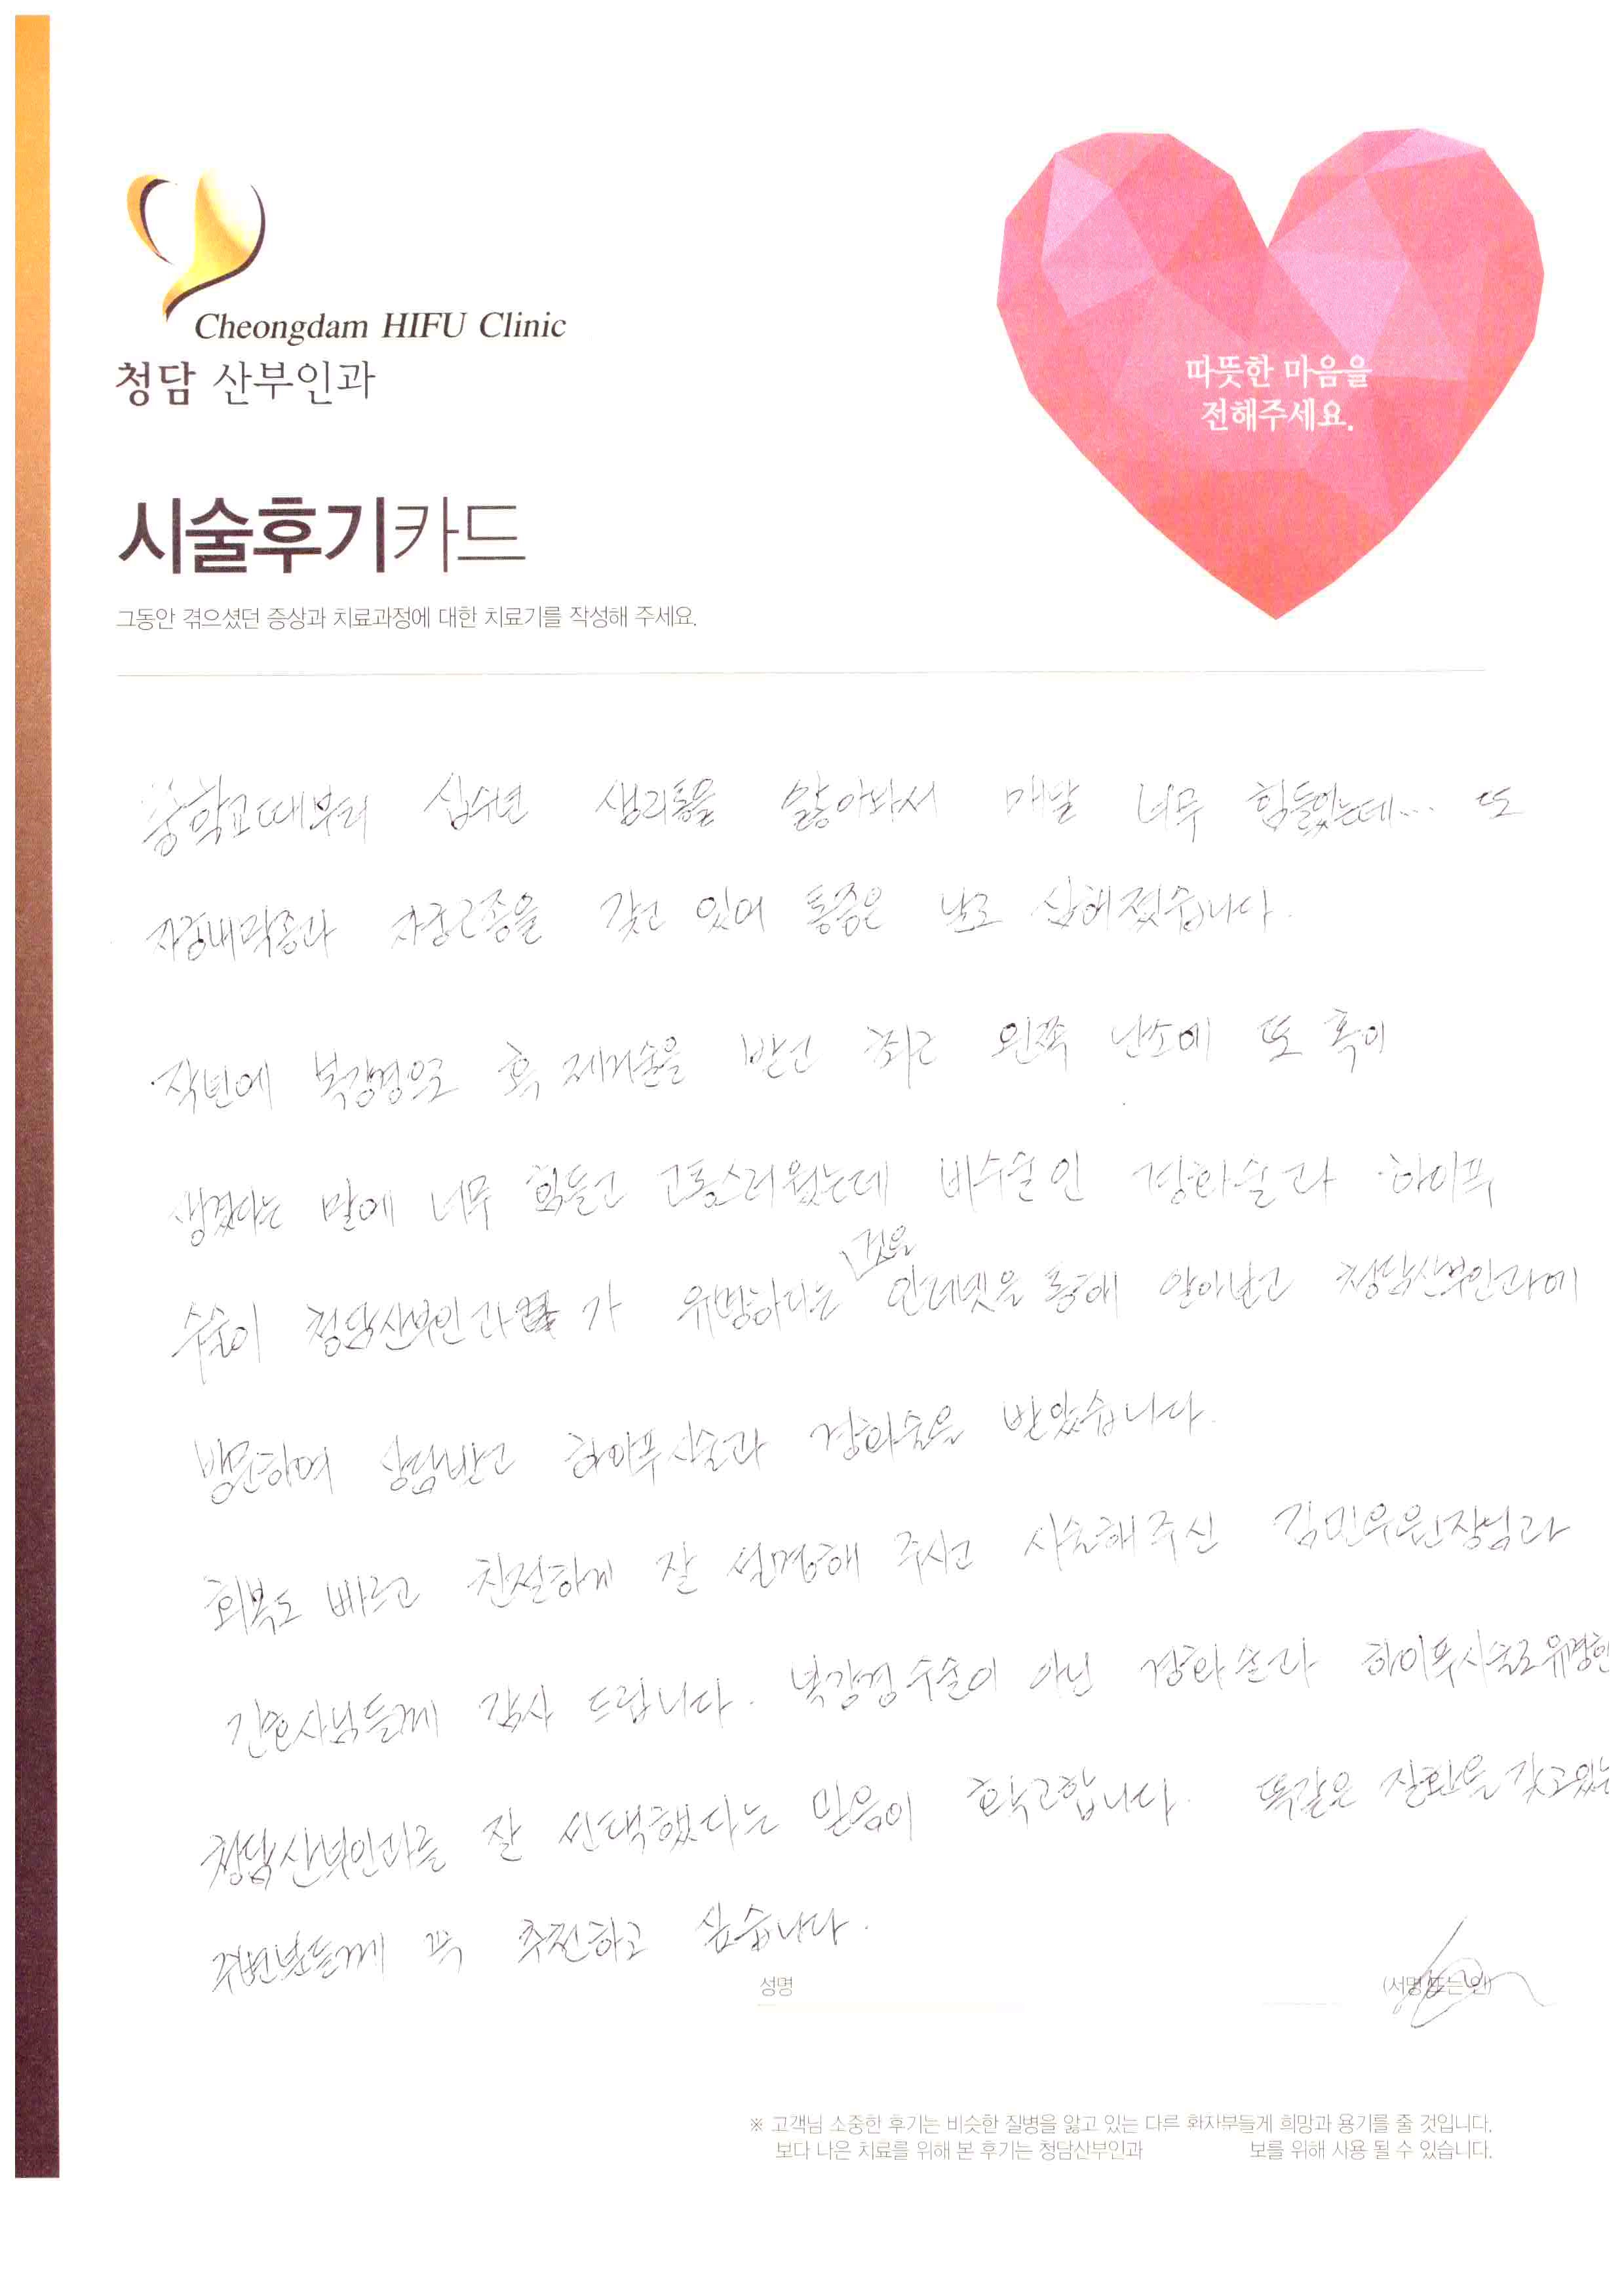 Cheongdam HIFU Clinic
청담 산부인과
따뜻한 마음을
전해주세요.
시술후기카드
그동안 겪으셨던 증상과 치료과정에 대한 치료기를 작성해 주세요.
중학교때부터 십수년 생리통을 앓아와서 매달 너무 힘들었는데... 또
자궁내막종과 자궁근종을 갖고 있어 통증은 날로 심해졌습니다.
작년에 복강경으로 혹 제거술을 받고 최근 왼쪽 난소에 또 혹이
생겼다는 말에 너무 힘들고 고통스러웠는데 비수술인 경화술과 하이푸
수술이 청담산부인과가 유명하다는 것을 인터넷을 통해 알아냈고 청담산부인과에
방문하여 상담받고 하이푸시술과 경화술을 받았습니다.
회복도 빠르고 친절하게 잘 설명해 주시고 시술해주신 김민우원장님과
간호사님들께 감사 드립니다. 복강경수술이 아닌 경화술과 하이푸시술로 유명한
청담산부인과를 잘 선택했다는 믿음이 확고합니다. 똑같은 질환을 갖고있는
주변분들께 꼭 추천하고 싶습니다.
성명 (서명 또는 인)
※ 고객님 소중한 후기는 비슷한 질병을 앓고 있는 다른 환자부들게 희망과 용기를 줄 것입니다.
보다 나은 치료를 위해 본 후기는 청담산부인과 보를 위해 사용 될 수 있습니다.